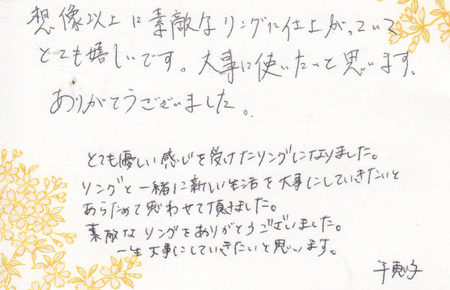 想像以上に素敵なリングに仕上がっていて
とても嬉しいです。大事に使いたいと思います。
ありがとうございました。
とても優しい感じを受けたリングになりました。
リングと一緒に新しい生活を大事にしていきたいと
あらためて思わせて頂きました。
素敵なリングをありがとうございました。
一生大事にしていきたいと思います。
千恵子